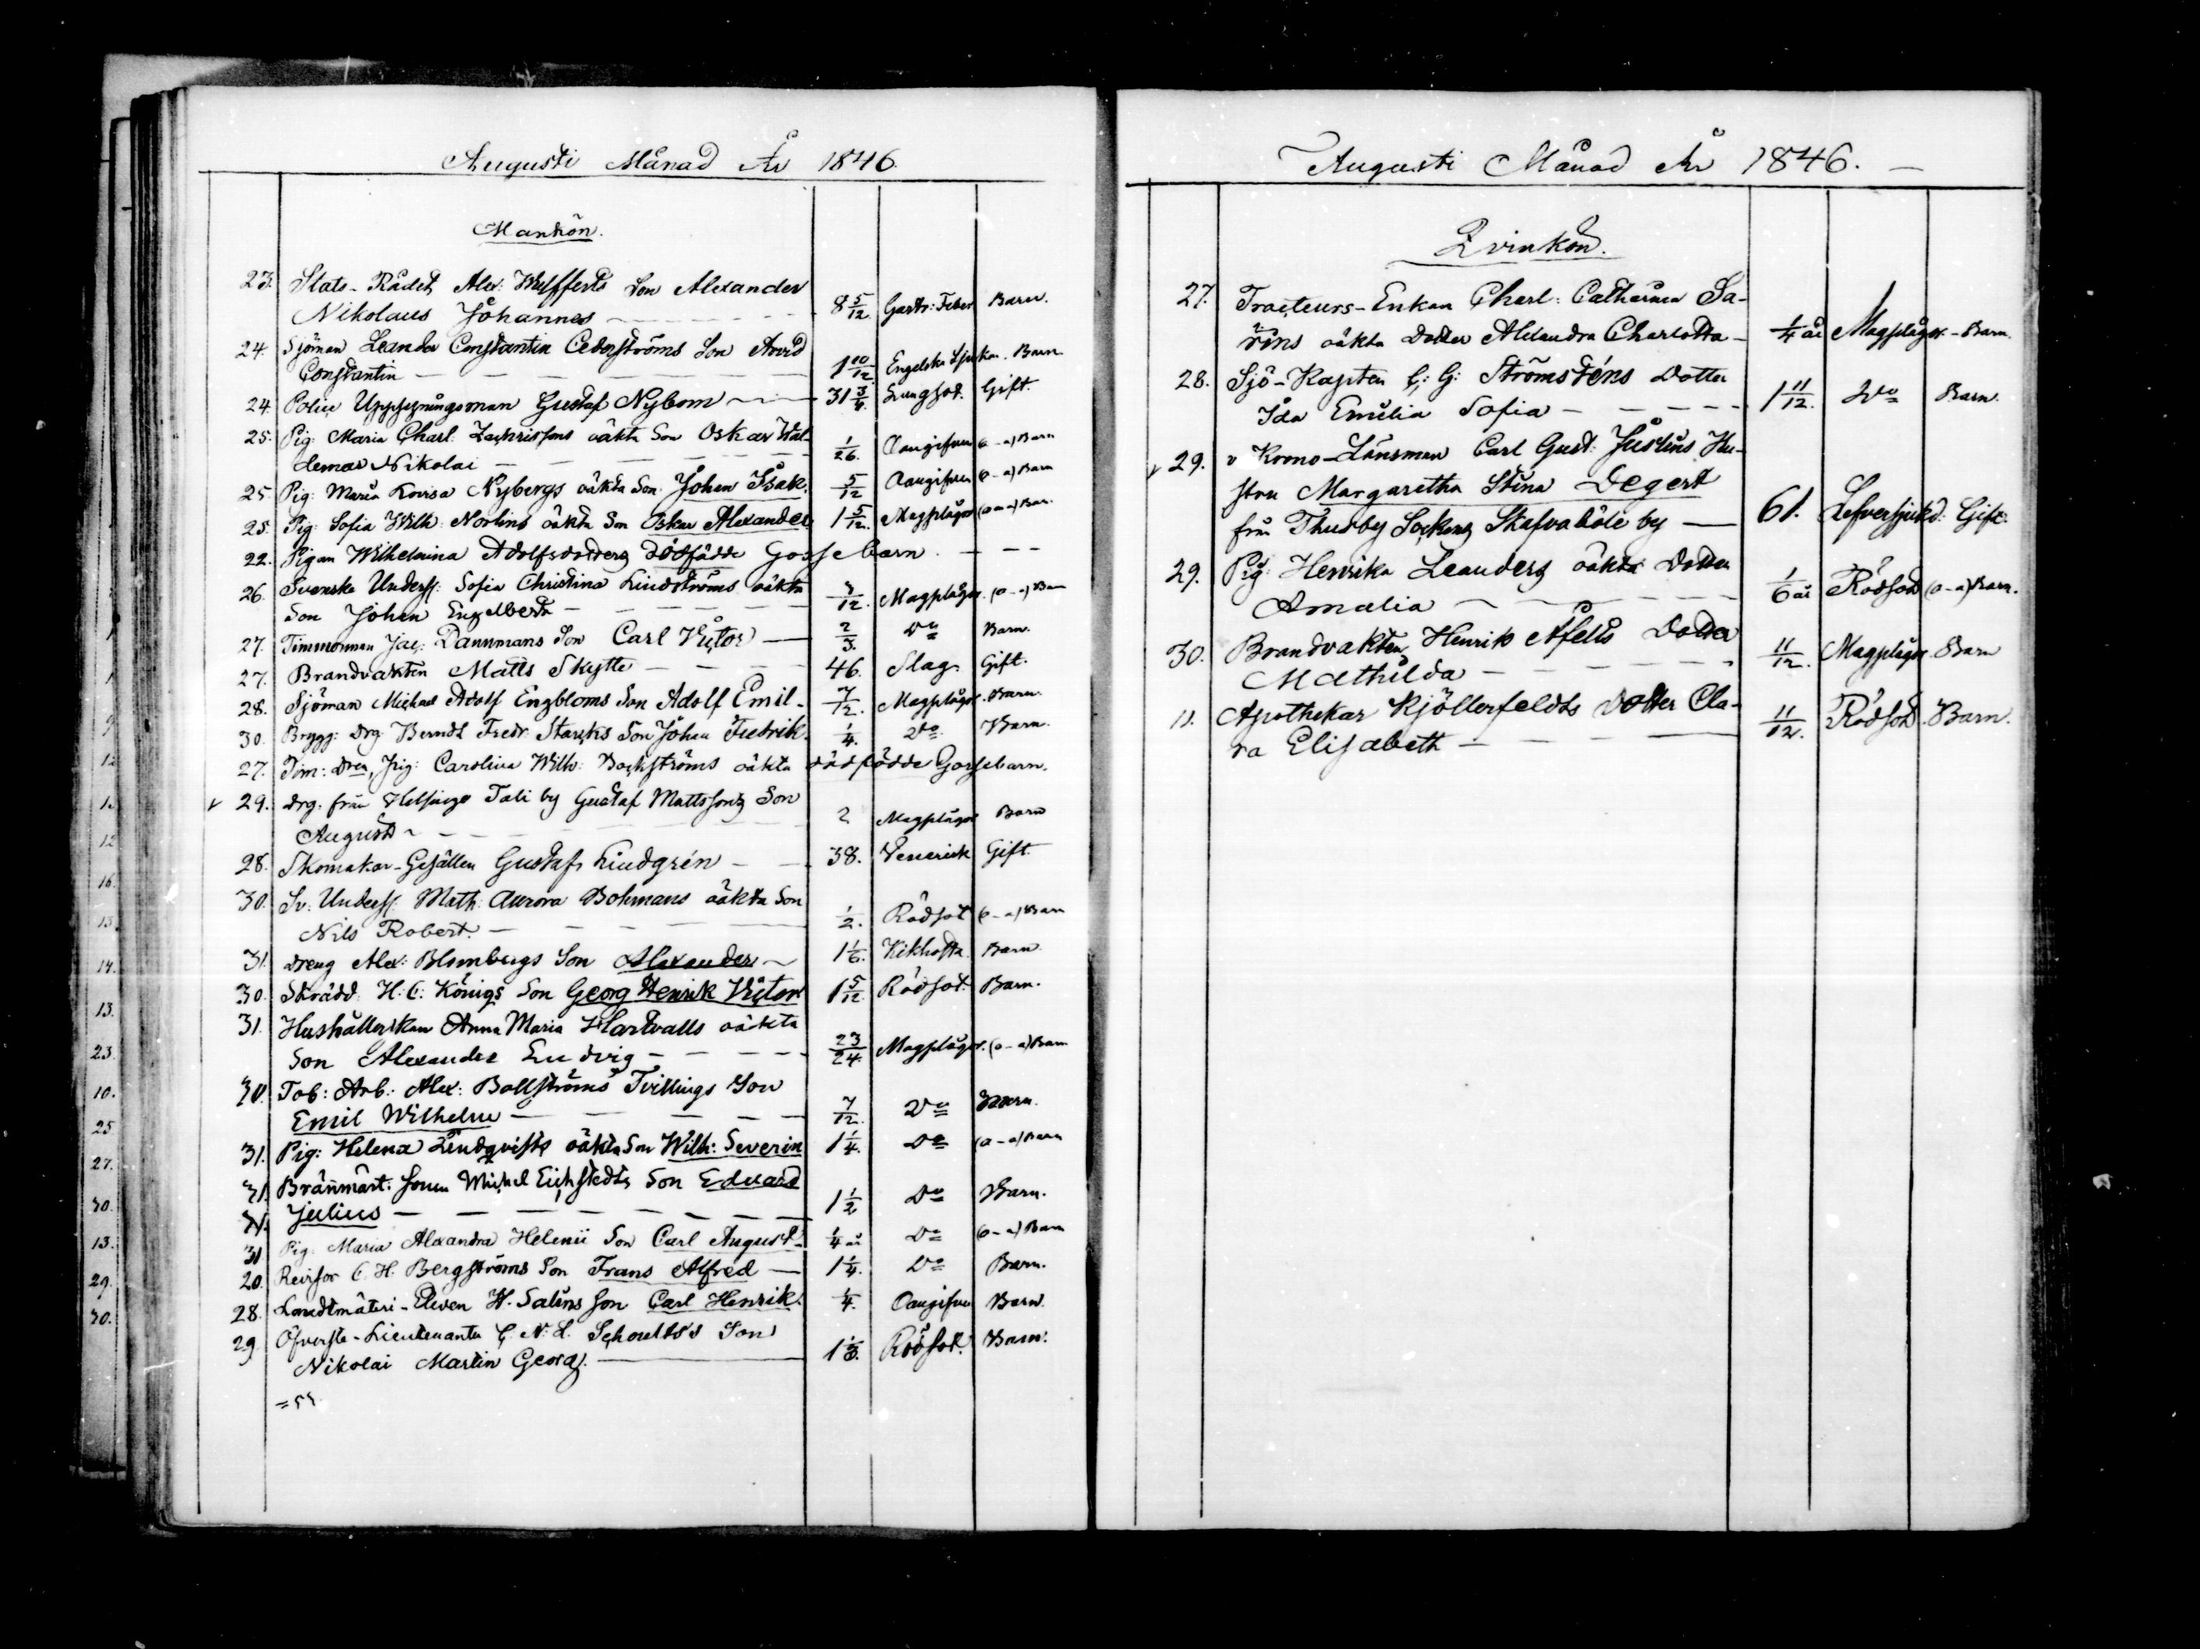 Augusti Månad År 1846.
Mankön.
23. Stats-Rådets Alex: Wulfferts Son Alexander
Nikolaus Johannes 8 5/12 Gastr: Feber Barn.
24. Sjöman Leander Constantin Cederströms Son Arvid
Constantin 1 10/12 Engelska Sjukan. Barn.
24. Police Uppsyningsman Gustaf Nybom 31 3/4 Lungsot. Gift.
25. Pig: Maria Charl: Zachrissons oäkta Son Oskar Wal-
demar Nikolai 1/26. Oangifven (o-ä) Barn
25. Pig: Maria Lovisa Nybergs oäkta Son Johan Isak. 5/12 Oangifven (o-ä) Barn
25. Pig: Sofia Wilh: Norlins oäkta Son Oskar Alexander 1 5/12. Magplågor (o-ä) Barn
22. Pigan Wilhelmina Adolfsdotters dödfödde Gossebarn.
26. Svenska Unders: Sofia Christina Lindströms oäkta
Son Johan Engelbert /12. Magplågor. (o-ä) Barn
27. Timmerman Jac: Dannmans Son Carl Victor 2/3. Do Barn.
27. Brandvakten Matts Skytte 46. Slag. Gift.
28. Sjöman Michael Adolf Engbloms Son Adolf Emil. 7/12. Magplågor. Barn.
30. Brygg: Drg Berndt Fredr: Starcks Son Johan Fredrik. 1/4. Do Barn.
27. Tim: Pig: Carolina Wilh: Backströms oäkta dödfödde Gossebarn.
v 29. Drg. från Helsinge Tali by Gustaf Mattssons Son
August 2 Magplågor Barn
28. Skomakar-Gesällen Gustaf Lindgrén 38. Venerisk Gift.
30. Sv: Unders: Math: Aurora Bohmans oäkta Son
Nils Robert. 1/2. Rödsot (o-ä) Barn
31. Dreng Alex: Blombergs Son Alexander 1 1/6. Kikhosta Barn
30. Skrädd. H. C. Königs Son Georg Henrik Victor 1 5/12. Rödsot. Barn.
31. Hushållerskan Anna Maria Hartvalls oäkta
Son Alexander Ludvig 23/24. Magplågor. (o-ä) Barn
30. Tob: Arb: Alex: Bollströms Tvillings Son
Emil Wilhelm 7/12. Do Barn.
31. Pig: Helena Lindqvists oäkta Son Wilh: Severin 1 1/4. Do (o-ä) Barn
31. Bränmäst: Michel Eichstedts Son Edvard
31. Julius 1 1/2 Do Barn.
31 Pig: Maria Alexandra Helenii Son Carl August 1/4 år Do (o-ä) Barn
20. Revisor C. H. Bergströms Son Frans Alfred 1 1/4. Do Barn.
28. Landtmäteri-Eleven H. Salins Son Carl Henrik. 1/4. Oangifven Barn.
29 Öfverste-Lieutenanten C. N. L. Schoultz's Son
Nikolai Martin Georg. 1 Rödsot. Barn.
Augusti Månad År 1846.
Qvinkön.
27. Tracteurs-Enkan Charl: Catharina Sa-
rins oäkta Dotter Alexandra Charlotta 1/4 år Magplågor. Barn.
28. Sjö-Kapten C: G: Strömsténs Dotter
Ida Emilia Sofia 1 11/12. Do Barn.
v 29. v Krono-Länsman Carl Gust: Justins Hu-
stru Margaretha Stina Degert
från Thusby Sockens Skafvaböle by 61. Lefversjukd. Gift.
29. Pig: Henrika Leanders oäkta Dotter
Amalia 1/6 år Rödsot (o-ä) Barn.
30. Brandvakten Henrik Afelts Dotter
Mathilda 11/12. Magplågor Barn
11. Apothekar Kjöllerfeldts Dotter Cla-
ra Elisabeth 11/12. Rödsot Barn.